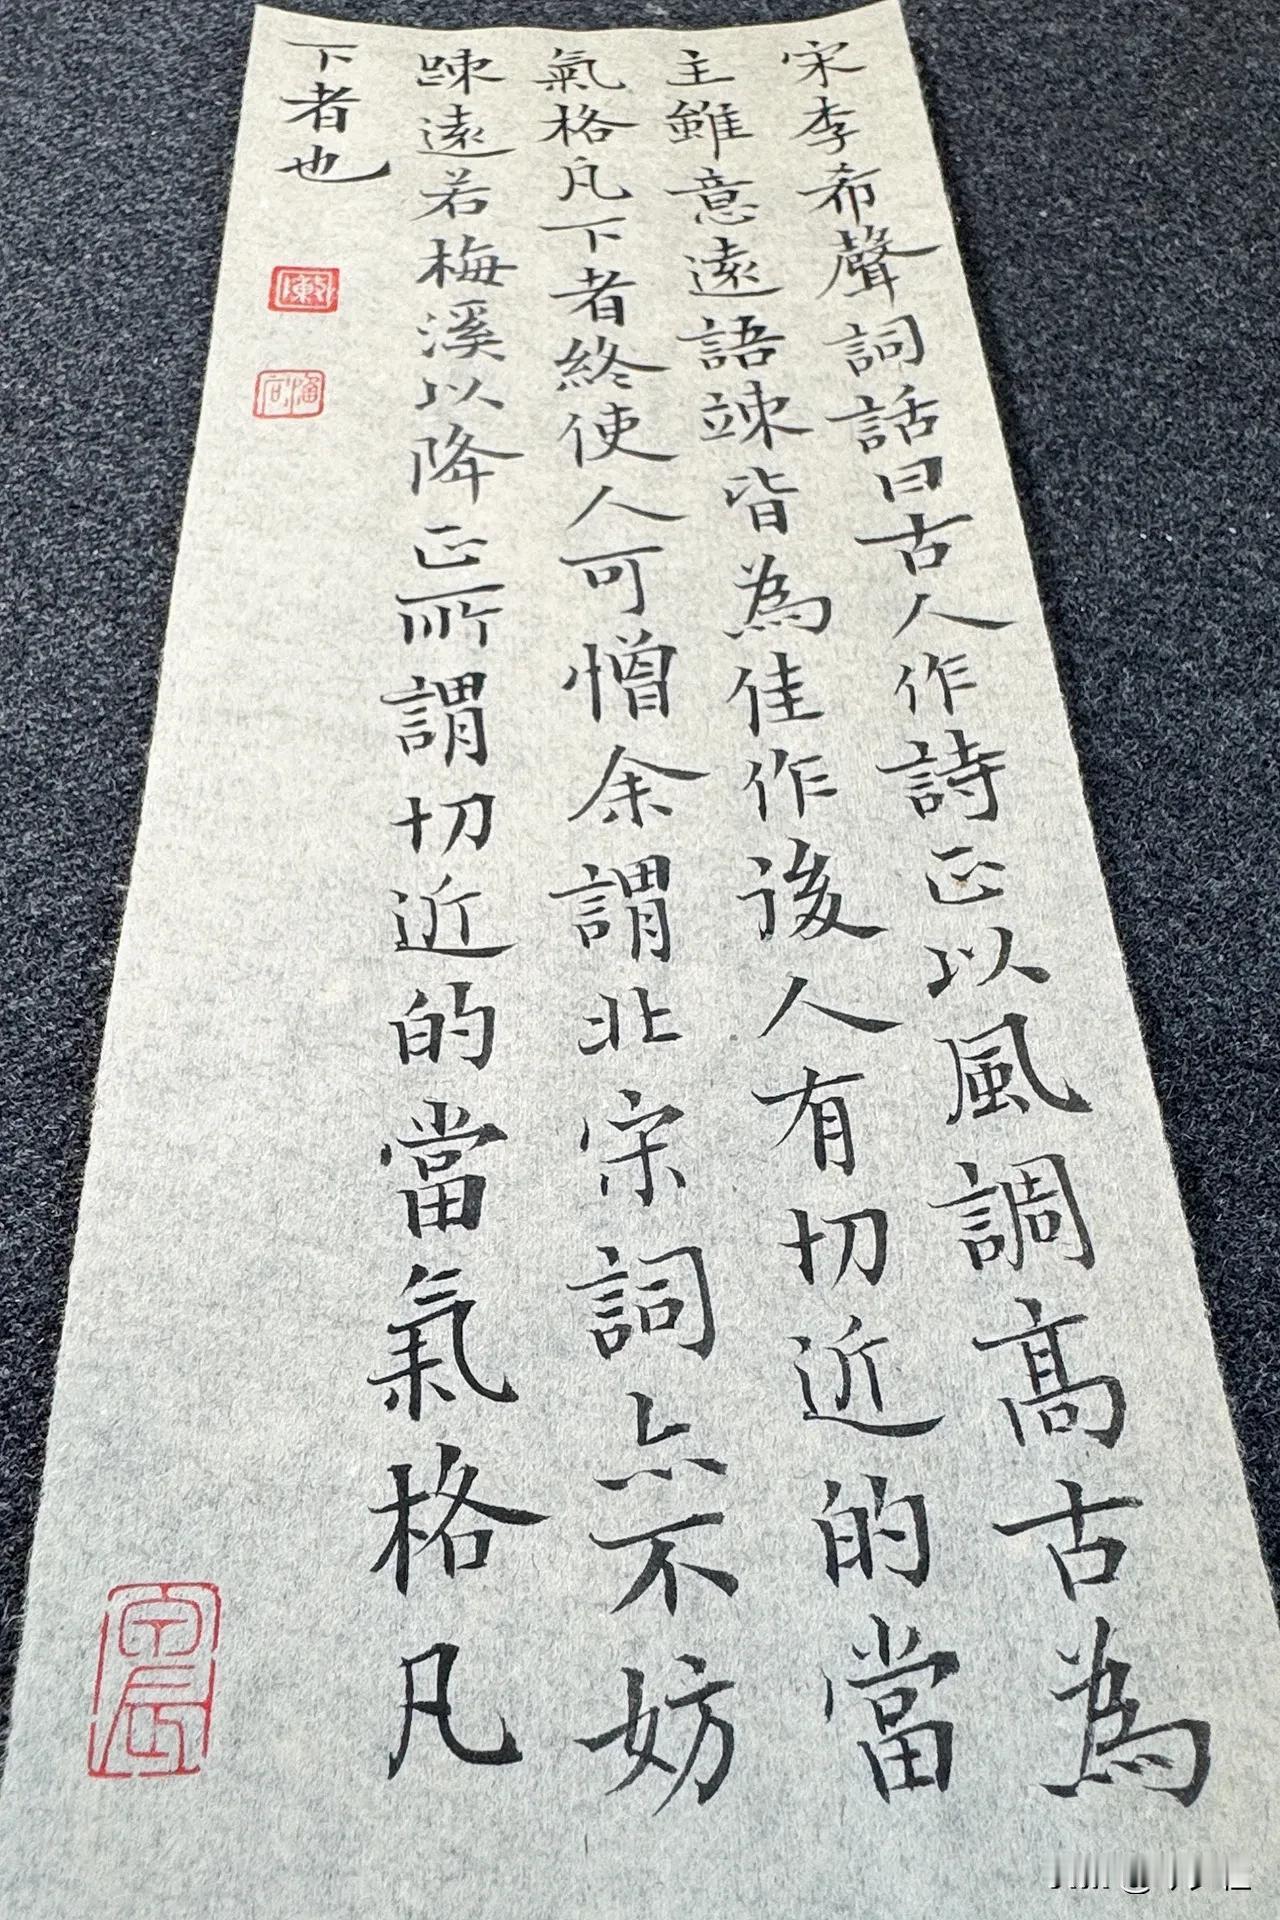 宋李希聲詞話曰古人作詩正以風調高古為
主雖意遠語竦皆為佳作後人有切近的當
氣格凡下者終使人可憎余謂北宋詞亦不妨
踈遠若梅溪以降正所謂切近的當氣格凡
下者也